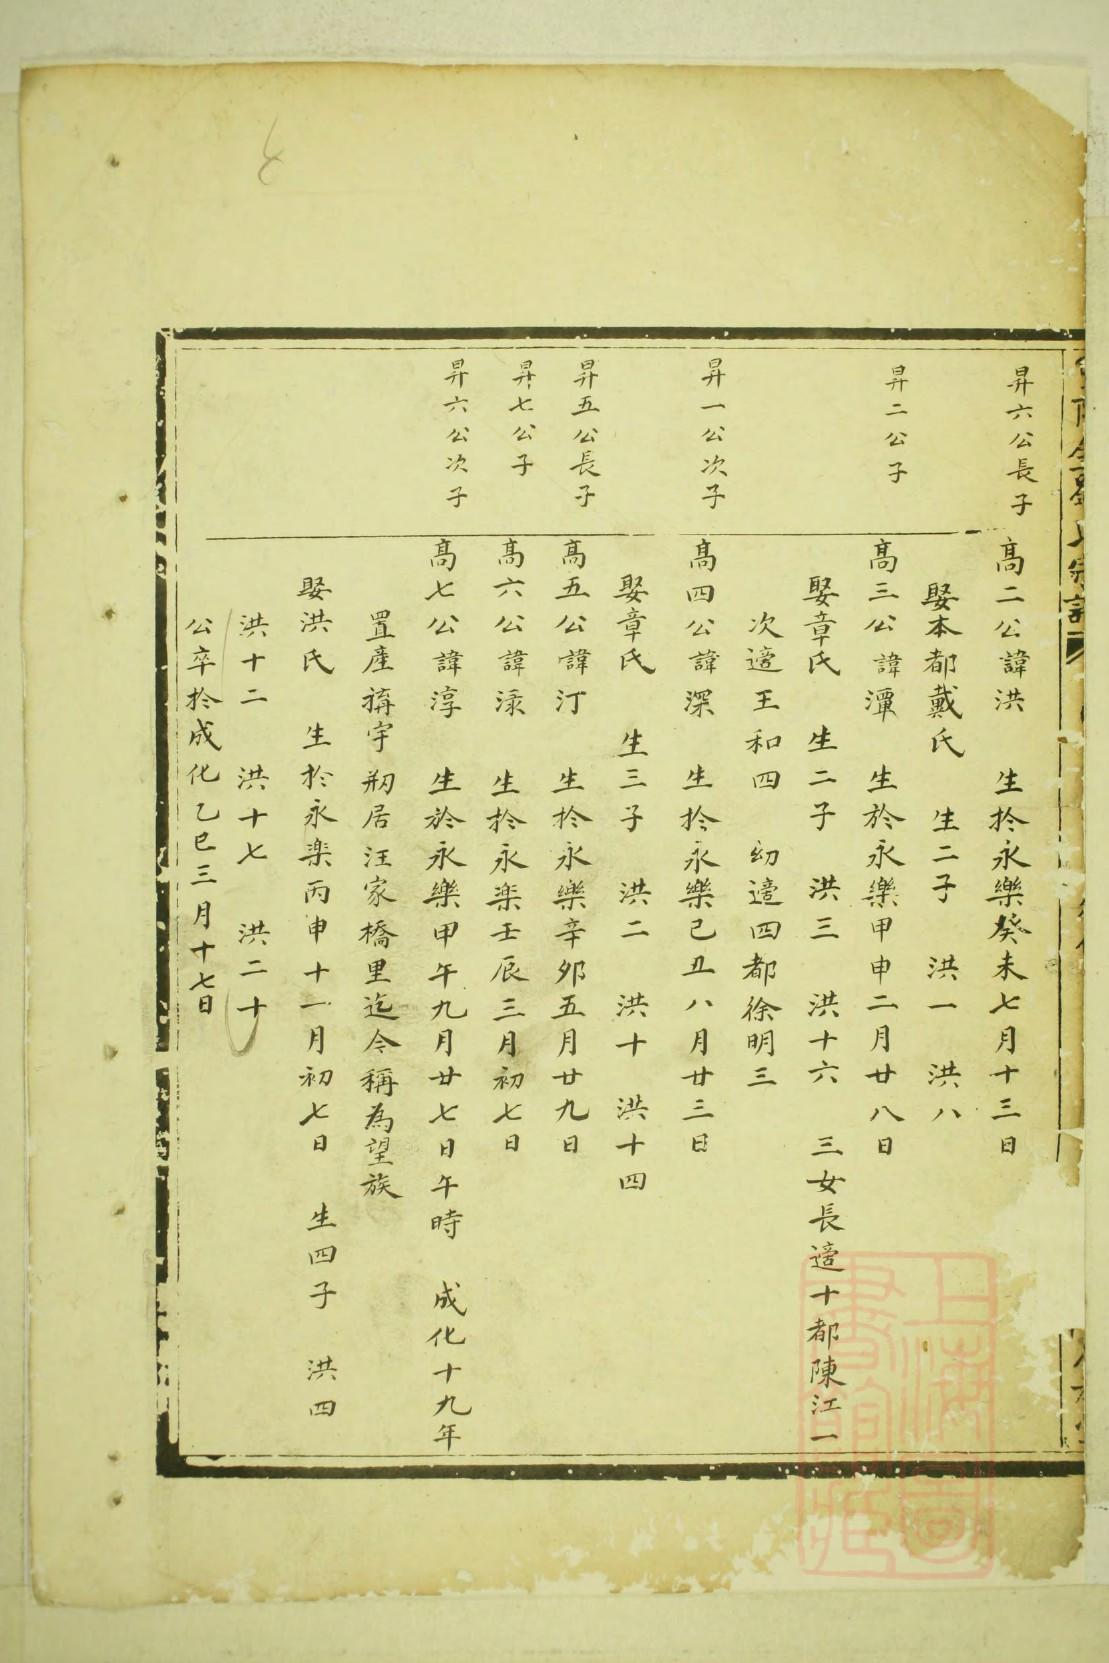 昇六公長子
高二公諱洪　生扵永樂癸未七月十三日
娶本都戴氏　生二子　洪一　洪八
昇二公子
高三公諱潭　生於永樂甲申二月廿八日
娶章氏　生二子　洪三　洪十六　三女長適十都陳江一
次適王和四　幼適四都徐明三
昇一公次子
高四公諱深　生扵永樂己丑八月廿三日
娶章氏　生三子　洪二　洪十　洪十四
昇五公長子
高五公諱汀　生扵永樂辛夘五月廿九日
昇七公子
高六公諱渌　生扵永楽壬辰三月初七日
昇六公次子
高七公諱淳　生於永樂甲午九月廿七日午時　成化十九年
置產搆宇　剏居汪家橋里迄今稱為望族
娶洪氏　生扵永楽丙申十一月初七日　生四子　洪四
洪十二　洪十七　洪二十
公卒扵成化乙巳三月十七日
上海圖書館藏